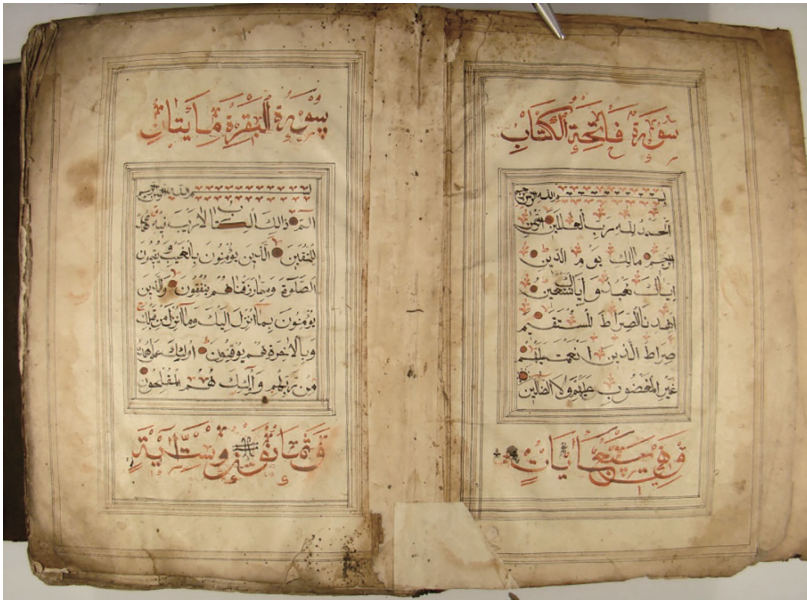 سورة فاتحة الكتاب
بسم الله الرحمن الرحيم
الحمد لله رب العلمين الرحمن
الرحيم مالك يوم الدين
اياك نعبد واياك نستعين
اهدنا الصراط المستقيم
صراط الذين انعمت عليهم
غير المغضوب عليهم ولا الضالين
وهي سبع ايات
سورة البقرة مايتان
بسم الله الرحمن الرحيم
الم ذالك الكتاب لا ريب فيه هدى
للمتقين الذين يؤمنون بالغيب ويقيمون
الصلوة ومما رزقناهم ينفقون والذين
يؤمنون بما انزل اليك وما انزل من قبلك
وبالاخرة هم يوقنون اولئك على هدى
من ربهم واوليك هم المفلحون
وست آية